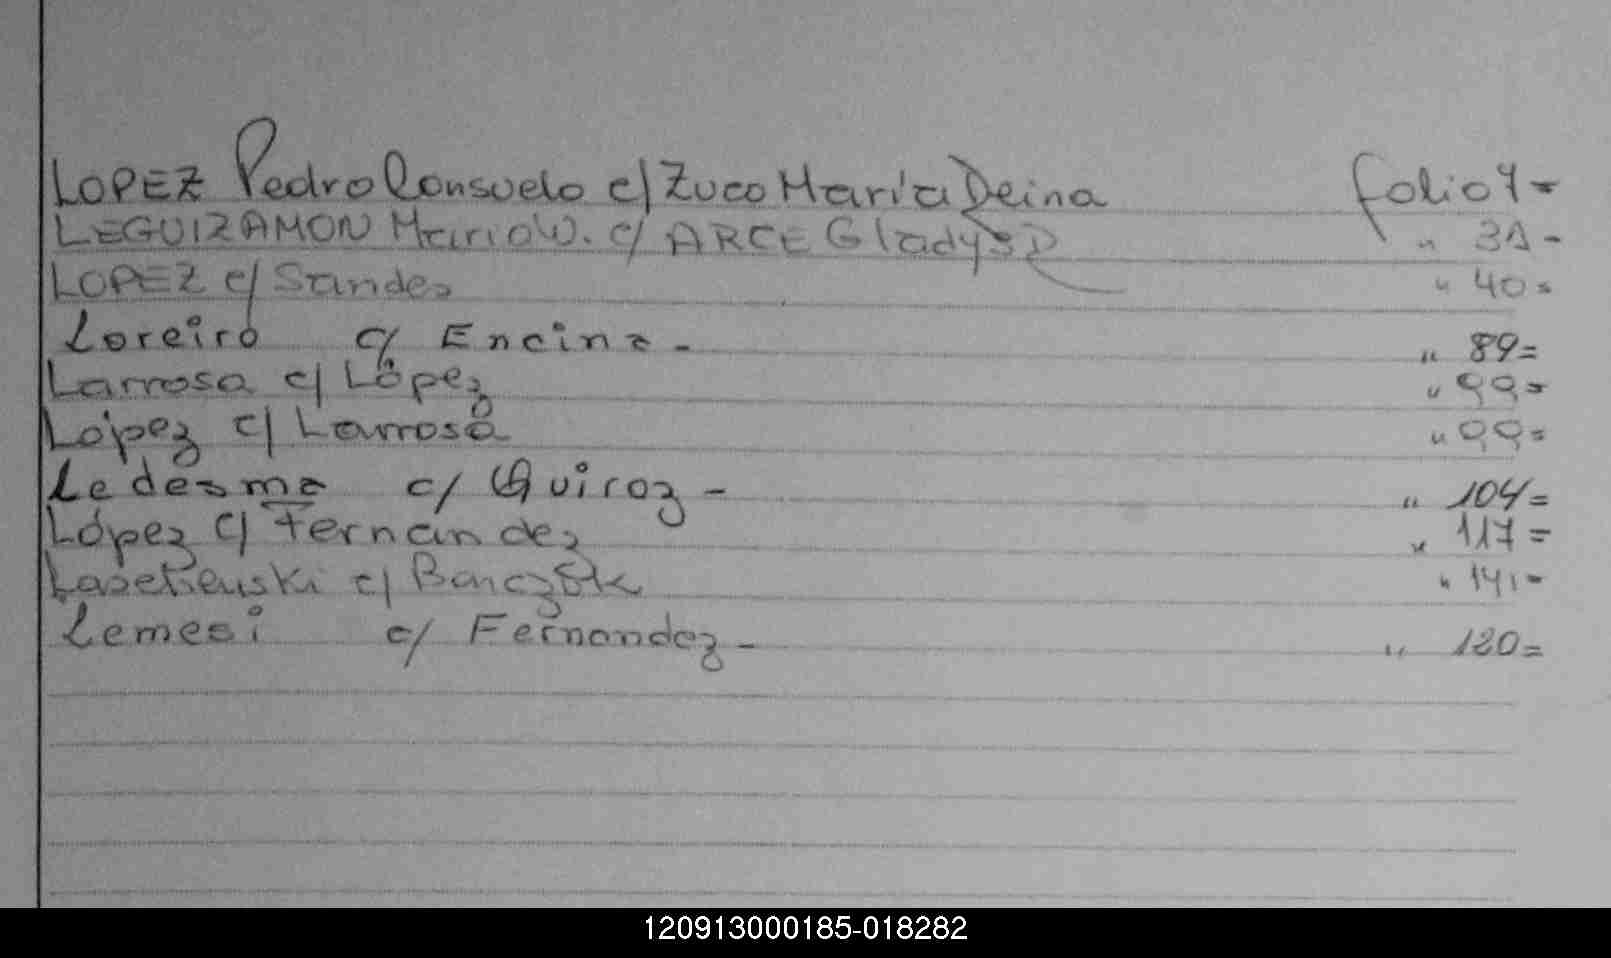 LOPEZ Pedro Consuelo c/ Zuco María Deina folio 7=
LEGUIZAMON Mario W. c/ ARCE Gladys D " 31-
LOPEZ c/ Sandez " 40=
Loreiro c/ Encina - " 89=
Larrosa c/ López " 99=
López c/ Larrosa " 99=
Ledesma c/ Quiroz - " 104=
López c/ Fernández " 117=
c/ " 141=
Lemesi c/ Fernandez - " 120=
120913000185-018282